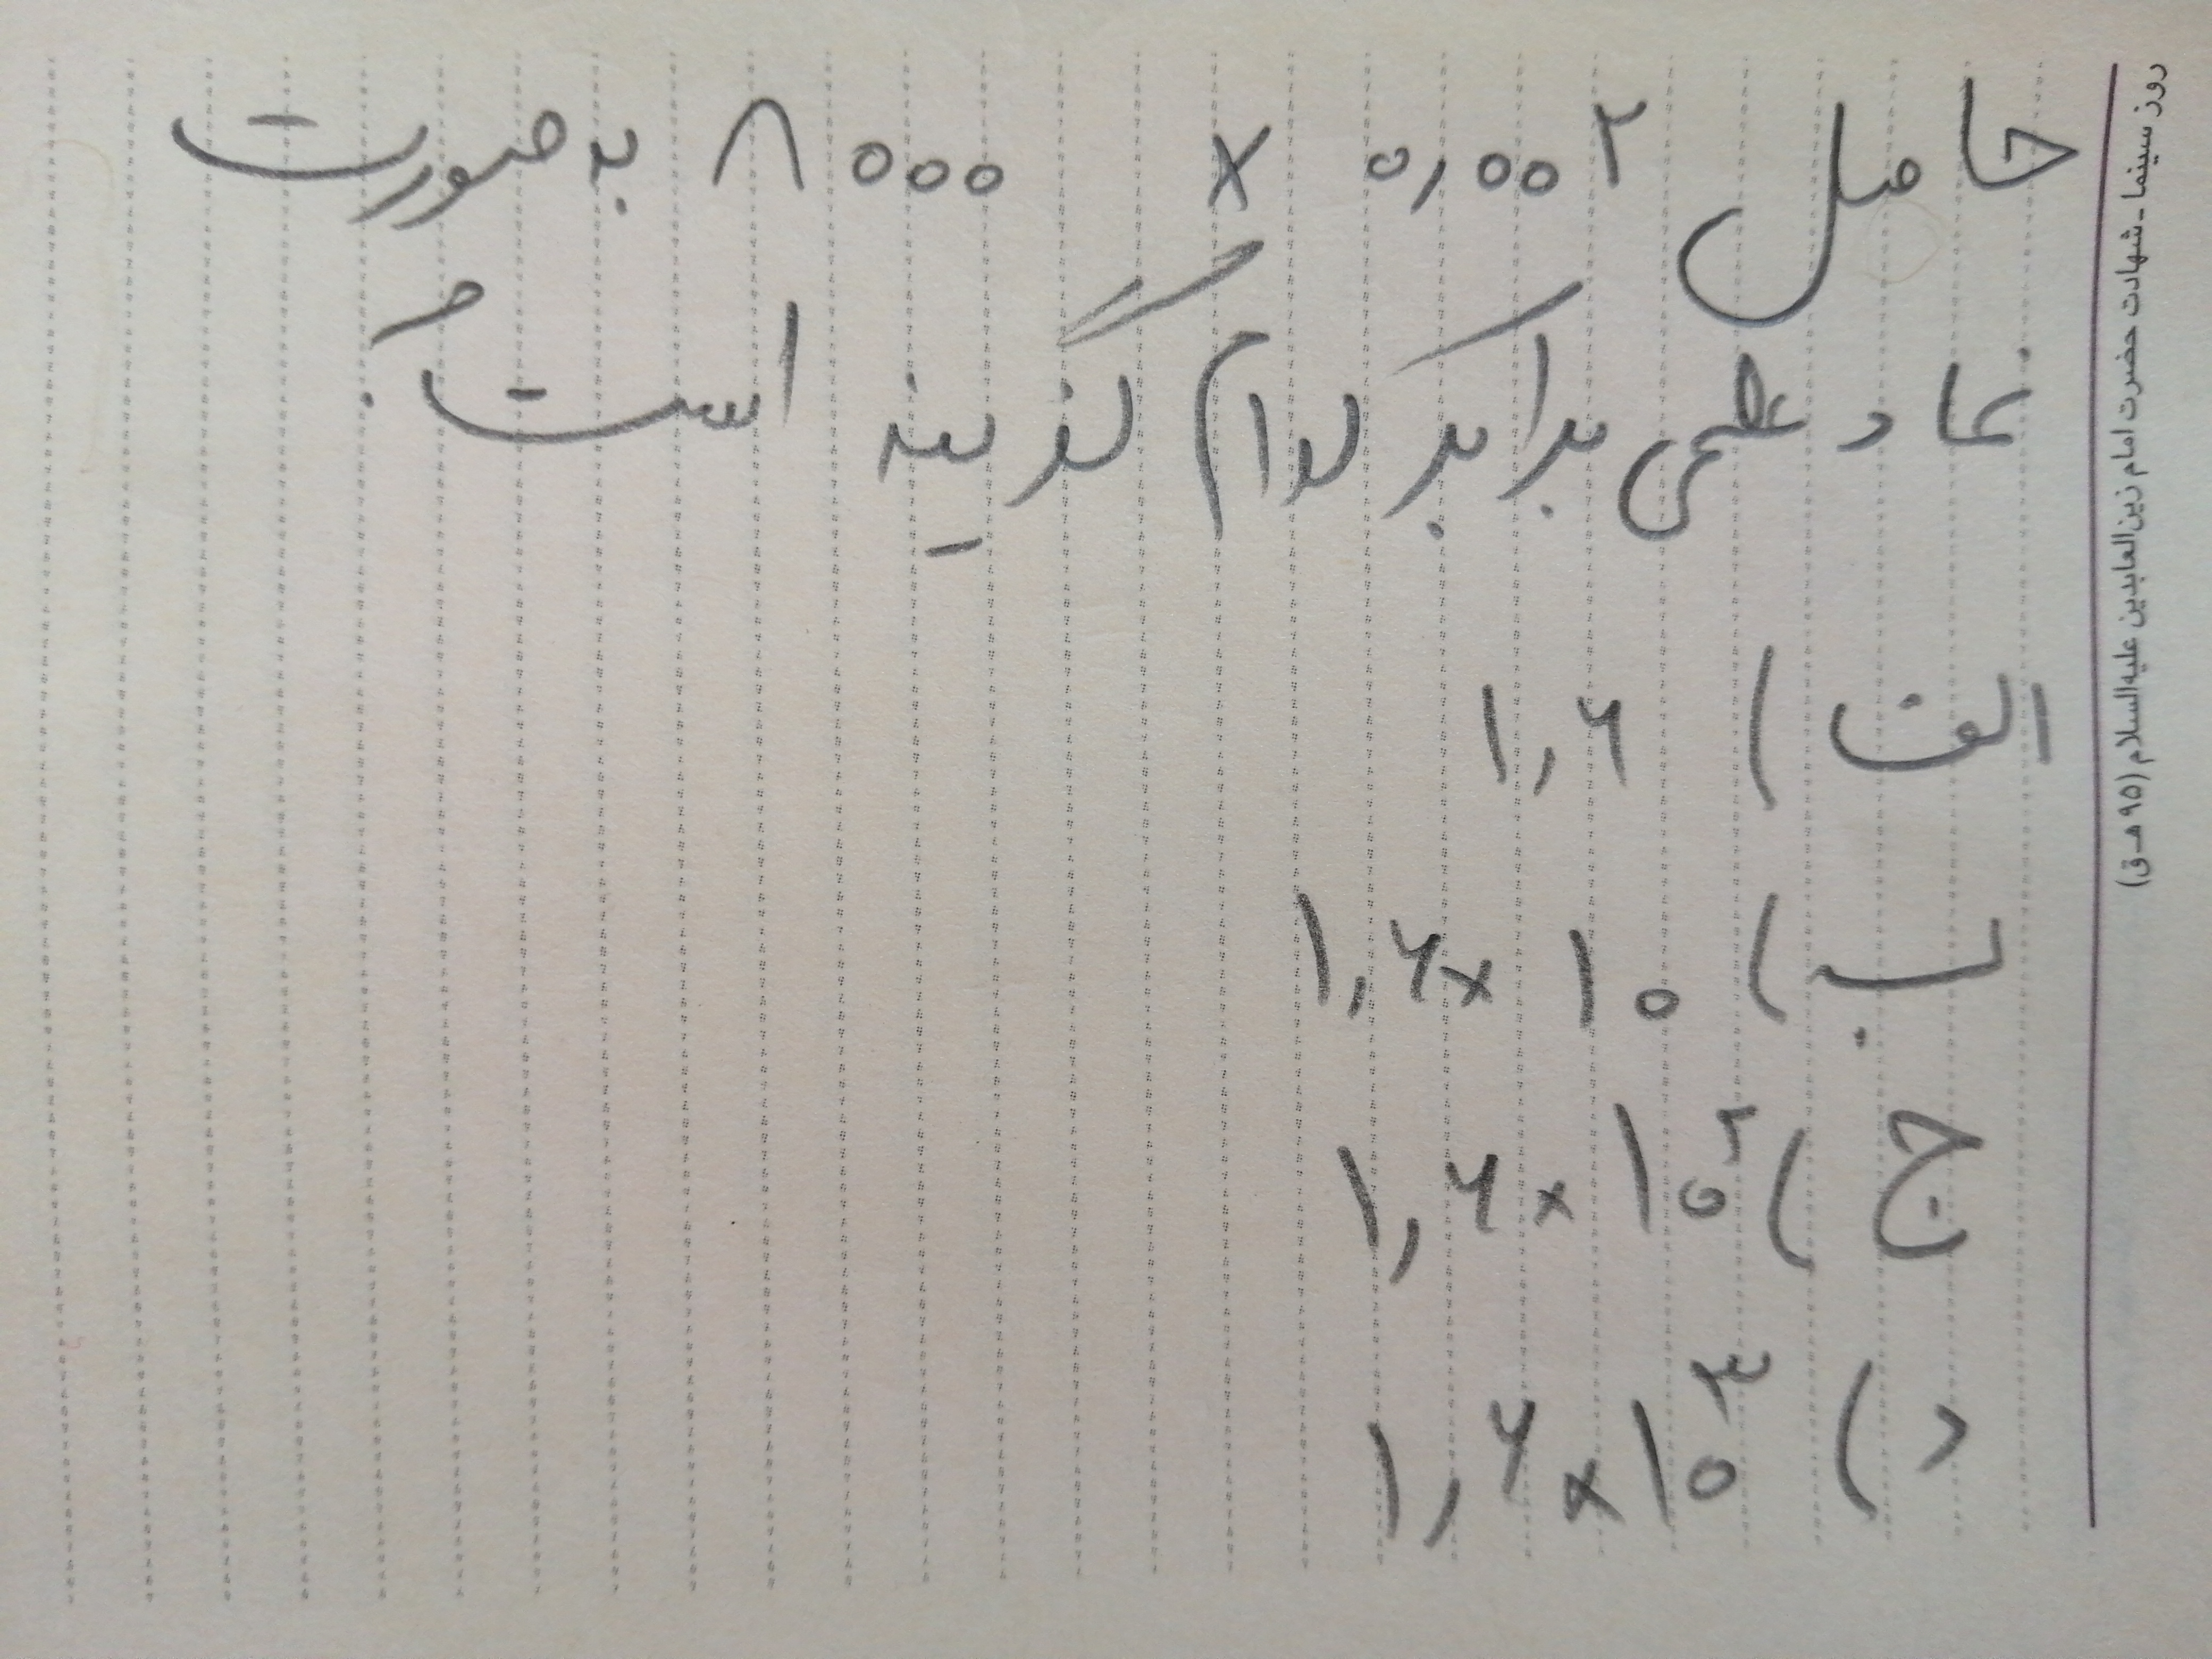 روز سینما - شهادت حضرت امام زین‌العابدین علیه‌السلام (۹۵ هـ ق)
حاصل ۸۰۰۰ × ۰,۰۰۲ به صورت
نماد علمی برابر کدام گزینه است؟
الف) ۱,۶
ب) ۱,۶×۱۰
ج) ۱,۶×۱۰^۲
د) ۱,۶×۱۰^۳